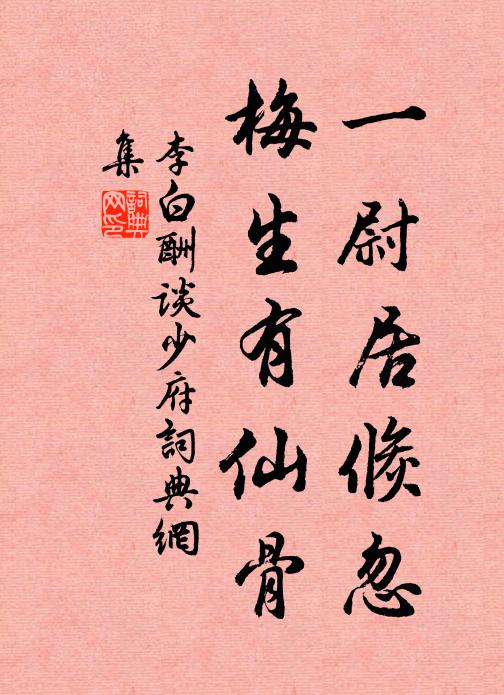 一尉居倏忽
梅生有仙骨
李白酬谈少府詞典網
集
詞典网印